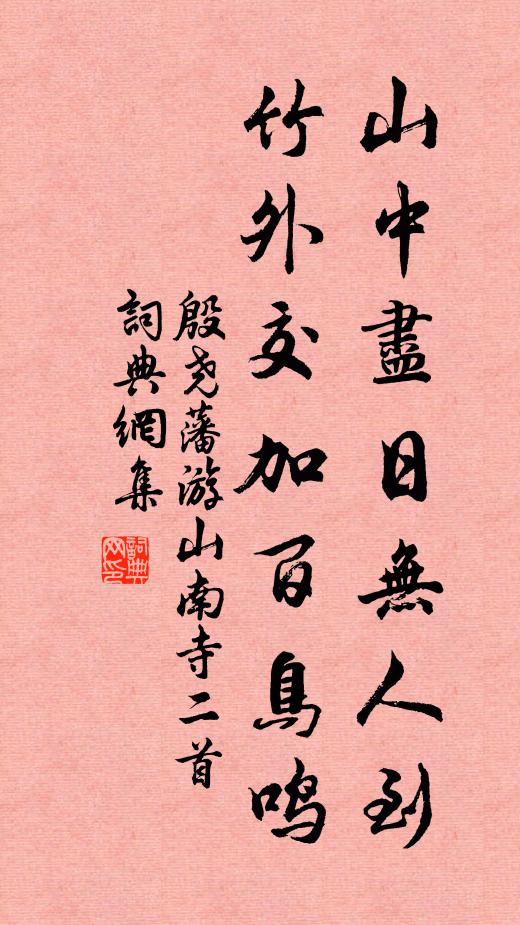 山中盡日無人到
竹外交加百鳥鳴
殷尧藩游山南寺二首
詞典網集
詞典网印